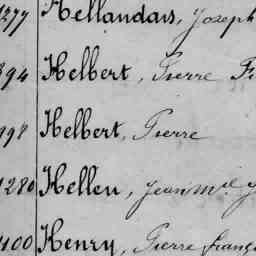 1277 Hellandais, Joseph
394 Helbert, Pierre F
998 Helbert, Pierre
1280 Helleu, Jean m.el J
1100 Henry, Pierre franç